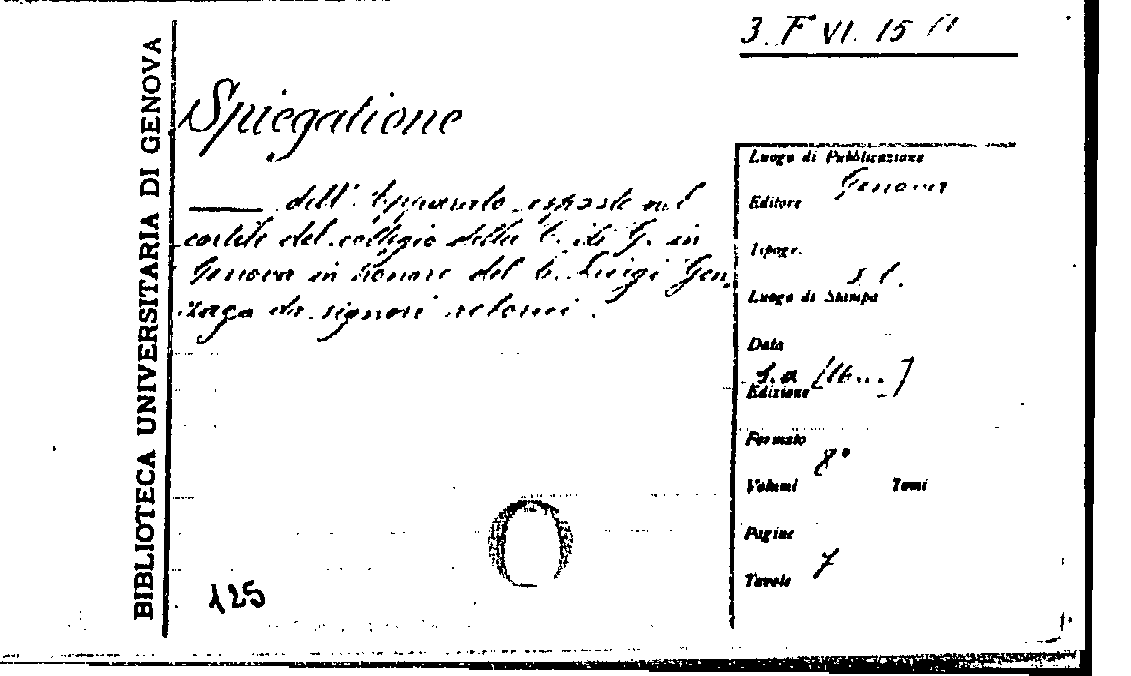 BIBLIOTECA UNIVERSITARIA DI GENOVA
3. F VI. 15
Spiegatione
dell' Apparato esposto nel
cortile del collegio della C. di G. in
Genova in honore del B. Luigi Gon-
zaga da signori
Luogo di Pubblicazione
Genova
Editore
Tipogr.
s. l.
Luogo di Stampa
Data
s. a.
Edizione
Formato
8°
Volumi Tomi
Pagine
7
Tavole
125